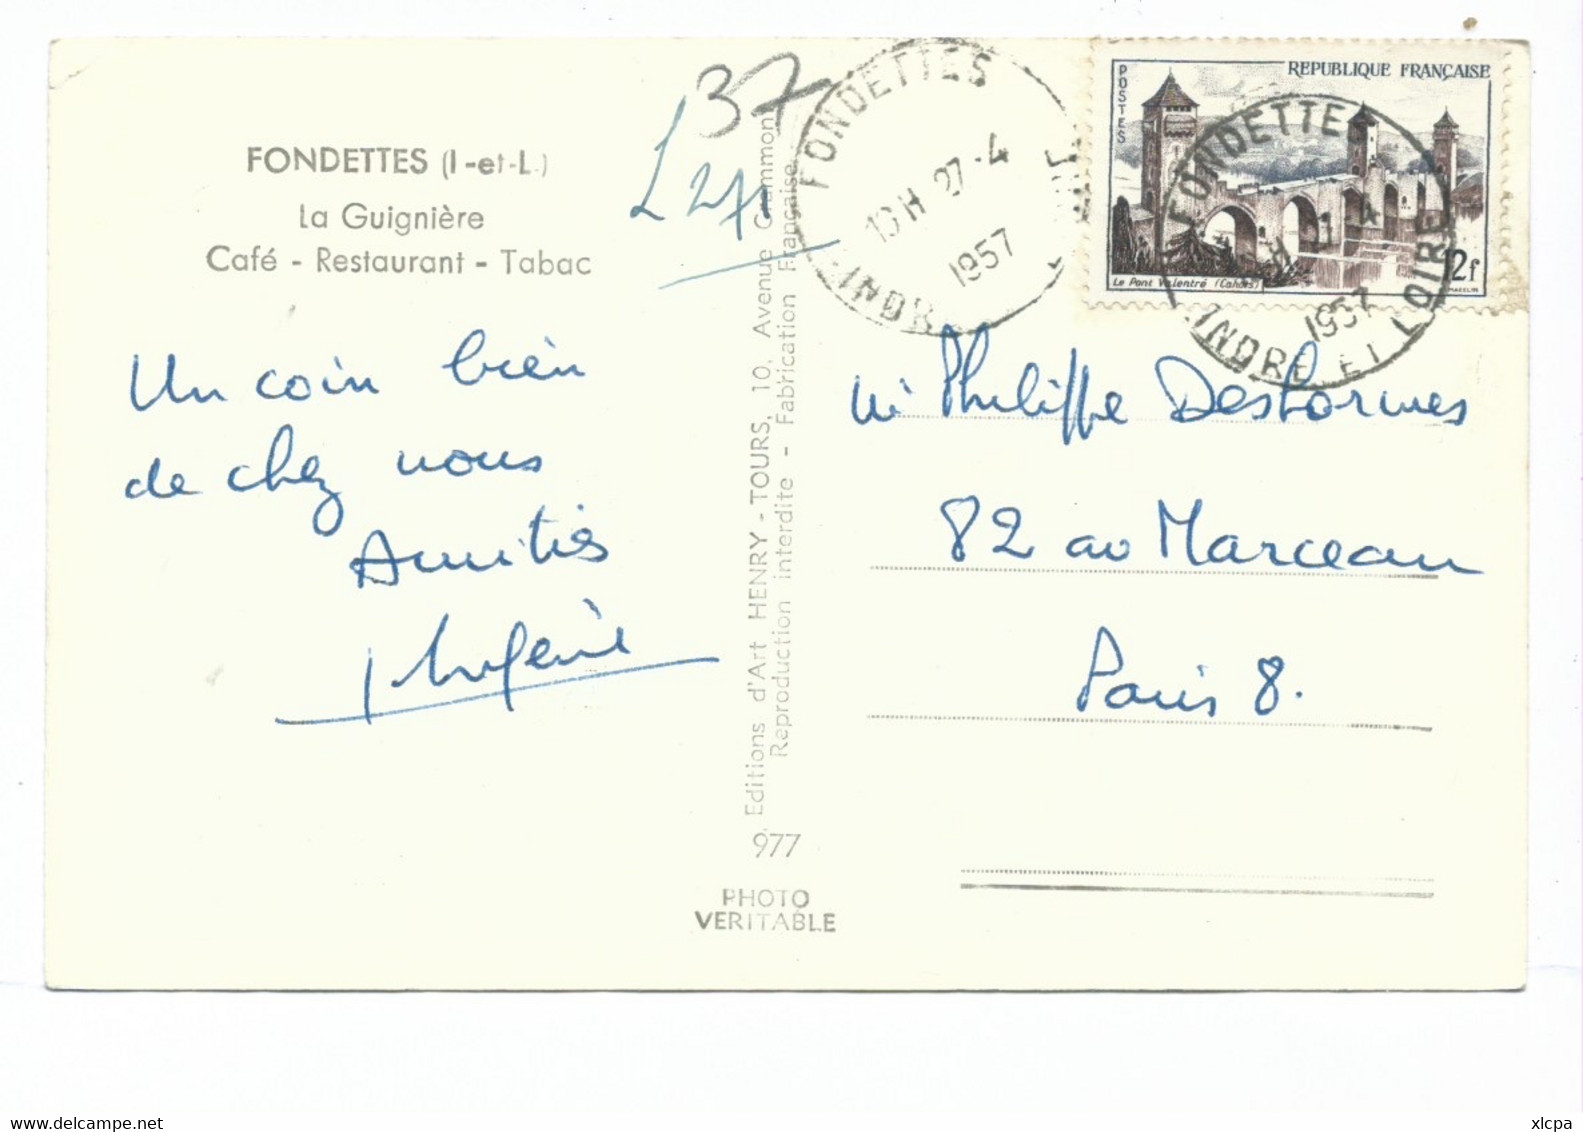 FONDETTES (I-et-L.)
La Guignière
Café - Restaurant - Tabac
37
Un coin bien
de chez nous
Amitiés
Editions d'Art HENRY - TOURS, 10, Avenue Grammont
Reproduction interdite - Fabrication Française
977
PHOTO
VERITABLE
FONDETTES
10H 27-4
1957
INDRE
REPUBLIQUE FRANÇAISE
POSTES
Le Pont Valentré (Cahors)
12f
FONDETTES
1957
INDRE ET LOIRE
Mr Philippe Desformes
82 av Marceau
Paris 8.
delcampe.net
xlcpa